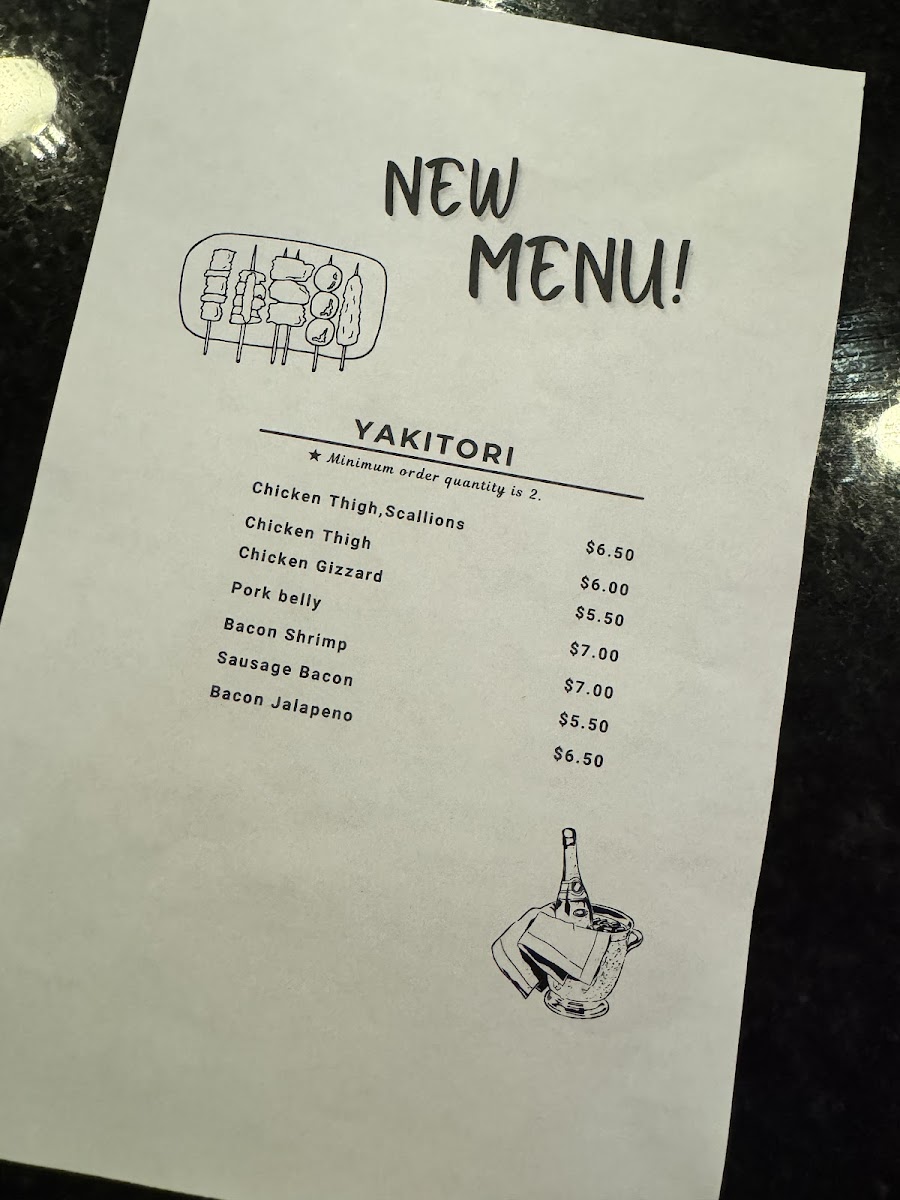 NEW
MENU!
YAKITORI
★ Minimum order quantity is 2.
Chicken Thigh,Scallions $6.50
Chicken Thigh $6.00
Chicken Gizzard $5.50
Pork belly $7.00
Bacon Shrimp $7.00
Sausage Bacon $5.50
Bacon Jalapeno $6.50